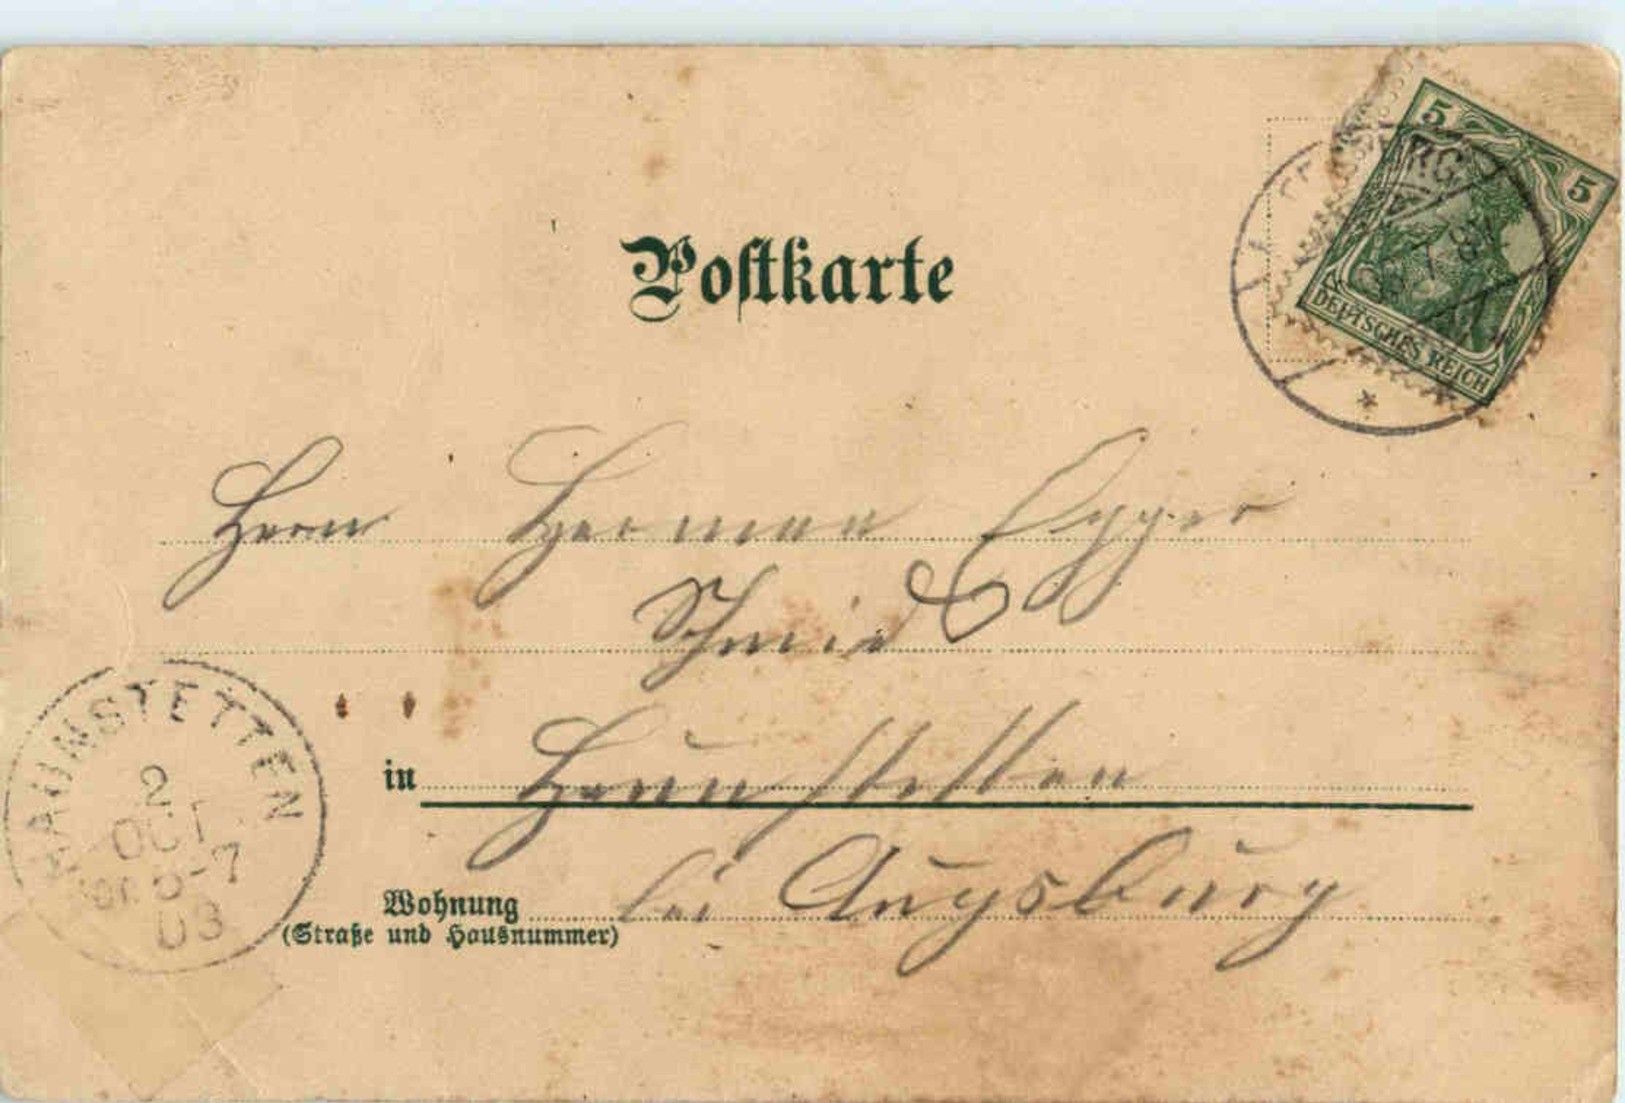 Postkarte
5 5
DEUTSCHES REICH
Herrn Herman Egger
Schmid
in Haunstetten
HAUNSTETTEN
2
OCT
5-7
03
Wohnung bei Augsburg
(Straße und Hausnummer)